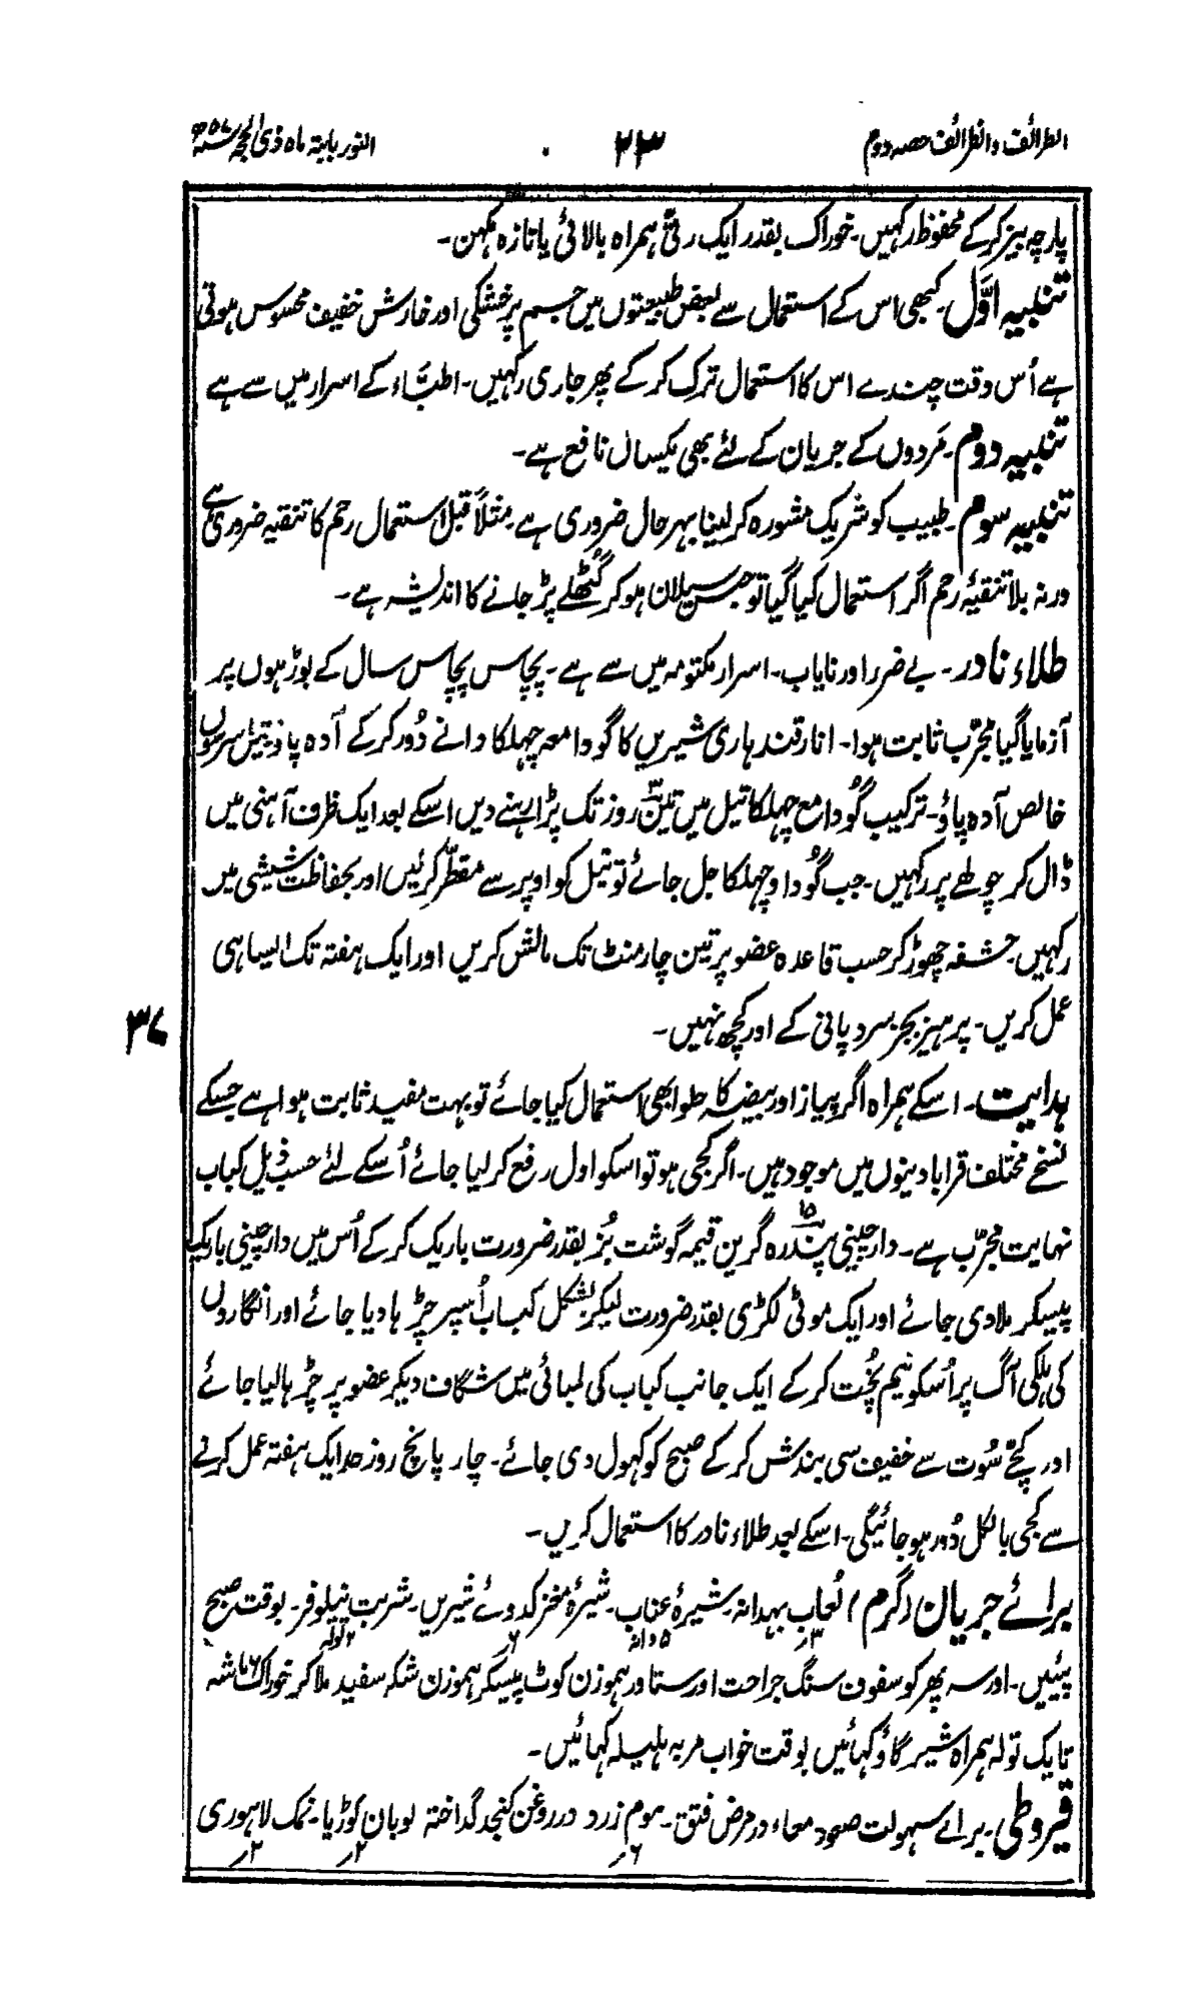 الطرائف والظرائف حصہ دوم
۲۳
النور بابتہ ماہ ذی الحجہ سنہ ۵۷ھ
پارچہ بیز کرکے محفوظ رکہیں۔ خوراک بقدر ایک رتی ہمراہ بالائی یا تازہ مکہن۔
تنبیہ اوّل۔ کبھی اس کے استعمال سے بعض طبیعتوں میں جسم پر خشکی اور خارش خفیف محسوس ہوتی
ہے اُس وقت چندے اس کا استعمال ترک کرکے پھر جاری رکہیں۔ اطبّاء کے اسرار میں سے ہے
تنبیہ دوم۔ مَردوں کے جریان کے لئے بھی یکساں نافع ہے۔
تنبیہ سوم۔ طبیب کو شریک مشورہ کر لینا بہر حال ضروری ہے۔ مثلاً قبل استعمال رحم کا تنقیہ ضروری ہے
ورنہ بلا تنقیۂ رحم اگر استعمال کیا گیا تو حبس سیلان ہو کر گٹھلے پڑ جانے کا اندیشہ ہے۔
طلاء نادر۔ بے ضرر اور نایاب۔ اسرار مکتومہ میں سے ہے۔ پچاس پچاس سال کے بوڑہوں پر
آزمایا گیا مجرّب ثابت ہوا۔ انار قندہاری شیریں کا گودا معہ چہلکا دانے دُور کرکے آدہ پاؤ تیل سرسوں
خالص آدہ پاؤ۔ ترکیب گُودا مع چہلکا تیل میں تین روز تک پڑا رہنے دیں اسکے بعد ایک ظرف آہنی میں
ڈال کر چولھے پر رکہیں۔ جب گُودا و چہلکا جل جائے تو تیل کو اوپر سے مقطّر کرلیں اور بحفاظت شیشی میں
رکہیں۔ حشفہ چھوڑ کر حسب قاعدہ عضو پر تین چار منٹ تک مالش کریں اور ایک ہفتہ تک ایسا ہی
عمل کریں۔ پرہیز بجز سرد پانی کے اور کچھ نہیں۔
۳۷
ہدایت۔ اسکے ہمراہ اگر پیاز اور بیضہ کا حلوا بھی استعمال کیا جائے تو بہت مفید ثابت ہوا ہے جسکے
نسخے مختلف قرابادینوں میں موجود ہیں۔ اگر کجی ہو تو اسکو اول رفع کر لیا جائے اُسکے لئے حسب ذیل کباب
نہایت مجرّب ہے۔ دارچینی پندرہ ۱۵ گرین قیمہ گوشت بُز بقدر ضرورت باریک کرکے اُس میں دارچینی باریک
پیسکر ملا دی جائے اور ایک موٹی لکڑی بقدر ضرورت لیکر بشکل کباب اُسپر چڑہا دیا جائے اور انگاروں
کی ہلکی آگ پر اُسکو نیم پُخت کرکے ایک جانب کباب کی لمبائی میں شگاف دیکر عضو پر چڑہا لیا جائے
اور کچے سُوت سے خفیف سی بندش کرکے صبح کو کہول دی جائے۔ چار پانچ روز حد ایک ہفتہ عمل کرنے
سے کجی بالکل دُور ہو جائیگی۔ اسکے بعد طلاء نادر کا استعمال کریں۔
برائے جریان (گرم) لُعاب بہدانہ۔ شیرۂ عناب۔ شیرۂ مغز کدوئے شیریں۔ شربت نیلوفر۔ بوقت صبح
۳ر ۵ دانہ ۶ر ۲ تولہ
پئیں۔ اور سہ پہر کو سفوف سنگ جراحت اور ستاور ہموزن کوٹ پیسکر ہموزن شکر سفید ملا کر خوراک ۶ ماشہ
تا یک تولہ ہمراہ شیر گاؤ کہائیں بوقت خواب مربہ ہلیلہ کہائیں۔
قیروطی۔ برائے سہولت صعود معاء در مرض فتق۔ موم زرد در روغن کنجد گداختہ لوبان کوڑیا۔ نمک لاہوری
۶ر ۲ر ۲ر